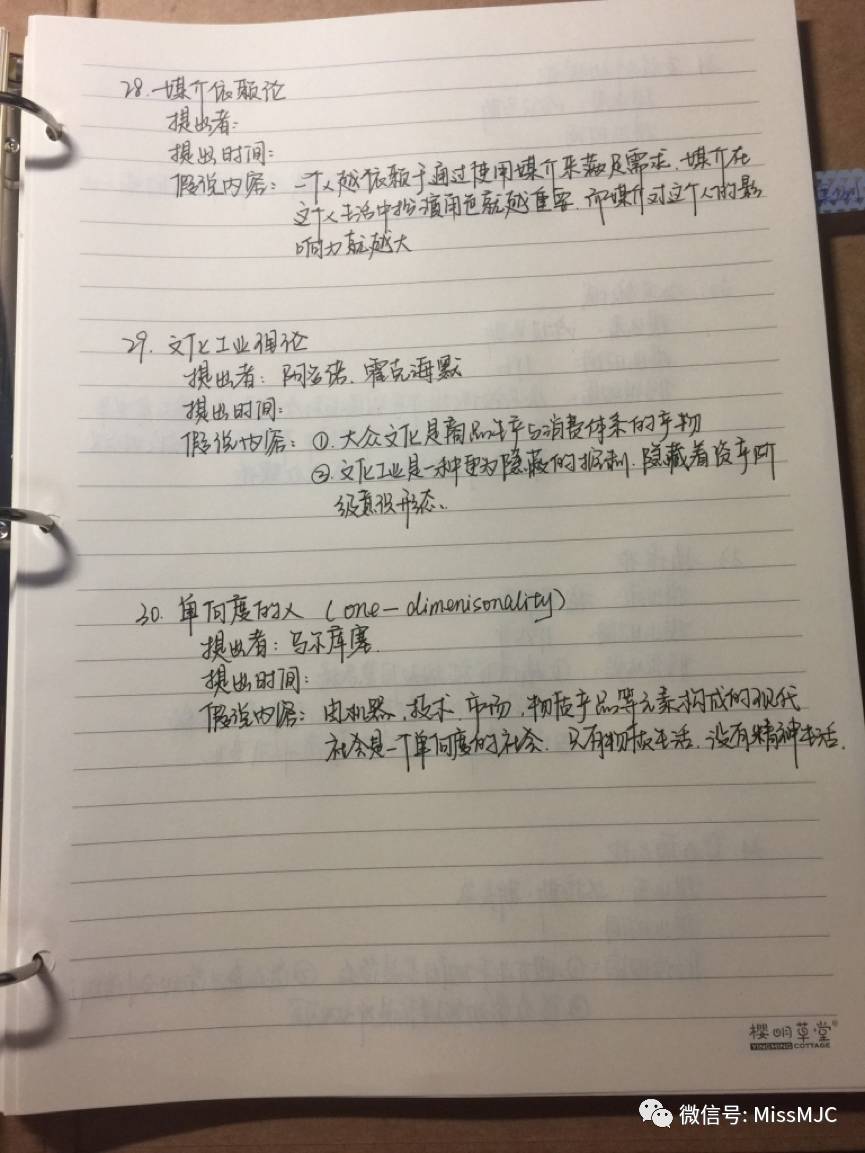 28. 媒介依赖论
提出者:
提出时间:
假说内容: 一个人越依赖于通过使用媒介来满足需求, 媒介在
这个人生活中扮演角色就越重要, 而媒介对这个人的影
响力就越大
29. 文化工业理论
提出者: 阿多诺、霍克海默
提出时间:
假说内容: ①. 大众文化是商品生产与消费体系的产物
②. 文化工业是一种更为隐蔽的控制, 隐藏着资产阶
级意识形态、
30. 单向度的人 (one-dimenisonality)
提出者: 马尔库塞.
提出时间:
假说内容: 由机器、技术、市场, 物质产品等元素构成的现代
社会是一个单向度的社会. 只有物质生活, 没有精神生活.
樱明草堂®
YINGMING COTTAGE
微信号: MissMJC